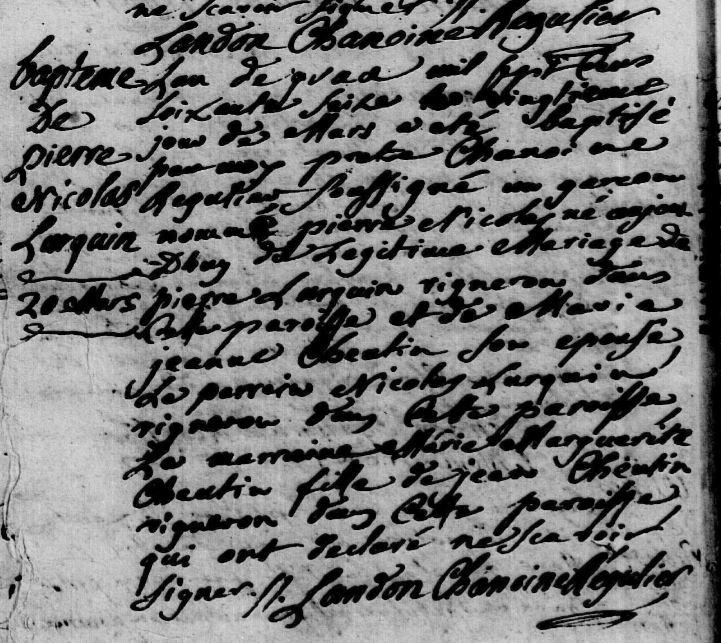 ne scavoir signer ./.
Landon Chanoine Regulier
bapteme
De
pierre
Nicolas
Larquin
20 Mars
Lan de grace mil sept cens
soixante seize le vingtieme
jour de Mars a eté baptisé
par moy pretre Chanoine
Regulier soussigné un garcon
nommé pierre Nicolas né aujour
Dhuy de Legitime Mariage de
pierre Larquin vigneron dans
Cette paroisse et de Marie
jeanne Cheutin son epouse,
Le parrein Nicolas Larquin
vigneron dans Cette paroisse
La marraine Marie Marguerite
Cheutin fille de jean Cheutin
vigneron dans Cette paroisse
qui ont declaré ne scavoir
signer ./. Landon Chanoine Regulier